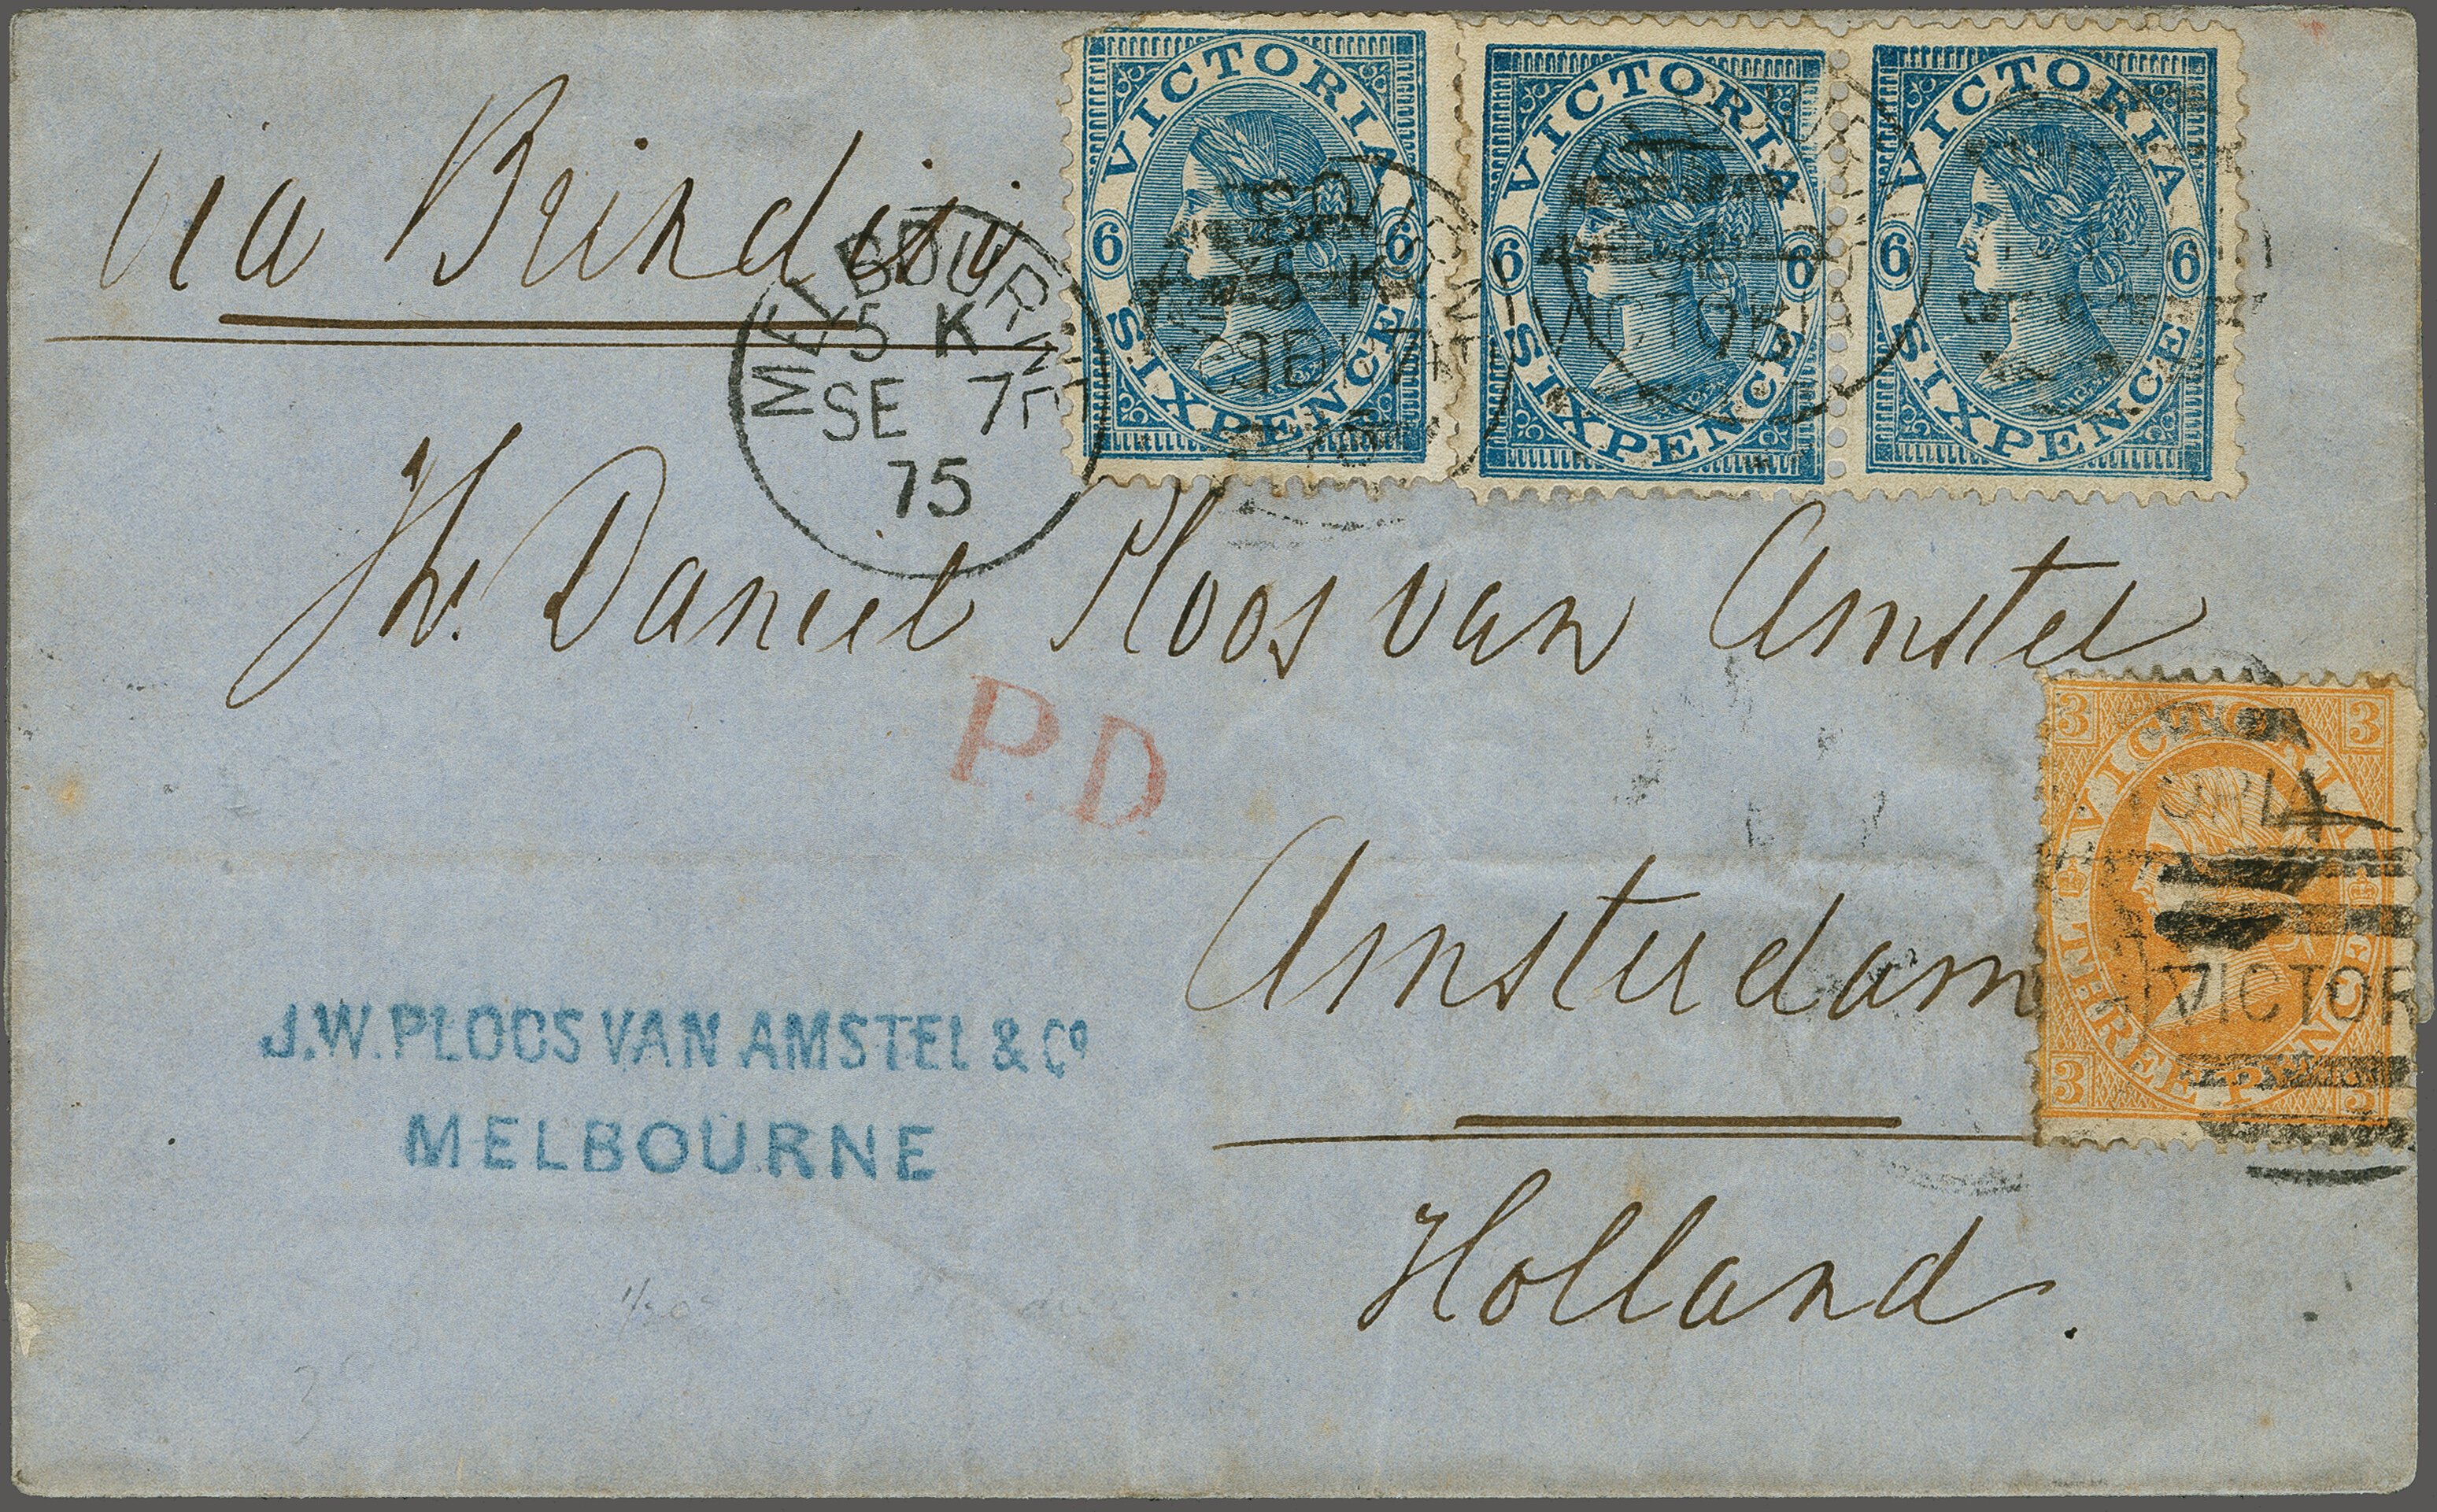 via Brindisi
VICTORIA
6 6
SIXPENCE
VICTORIA
6 6
SIXPENCE
VICTORIA
6 6
SIXPENCE
MELBOURNE
5 K
SE 7
75
Hr. Daniel Ploos van Amstel
P.D
3 3
VICTORIA
THREE PENCE
3 3
VICTOR
Amsterdam
J.W. PLOOS VAN AMSTEL & Co
MELBOURNE
Holland.